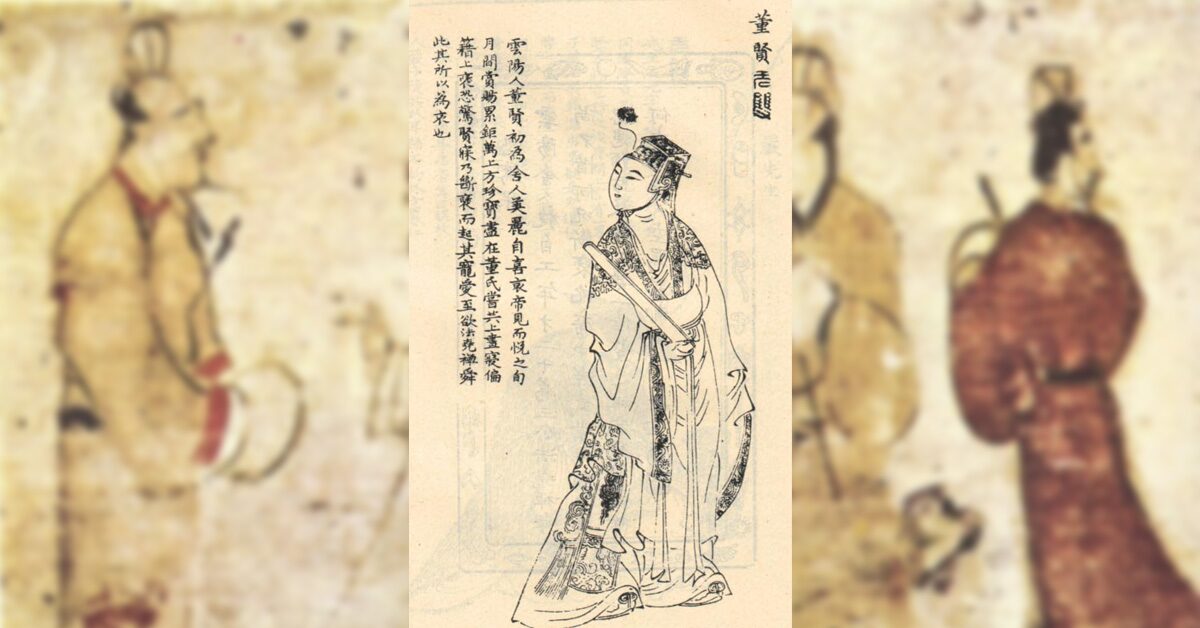 董賢
雲陽人董賢初為舍人美麗自喜哀帝見而悅之旬
月間賞賜累鉅萬上方珍寶盡在董氏嘗共上晝寢偏
籍上褏恐驚賢寐乃斷褏而起其寵愛至欲法堯禪舜
此其所以為哀也